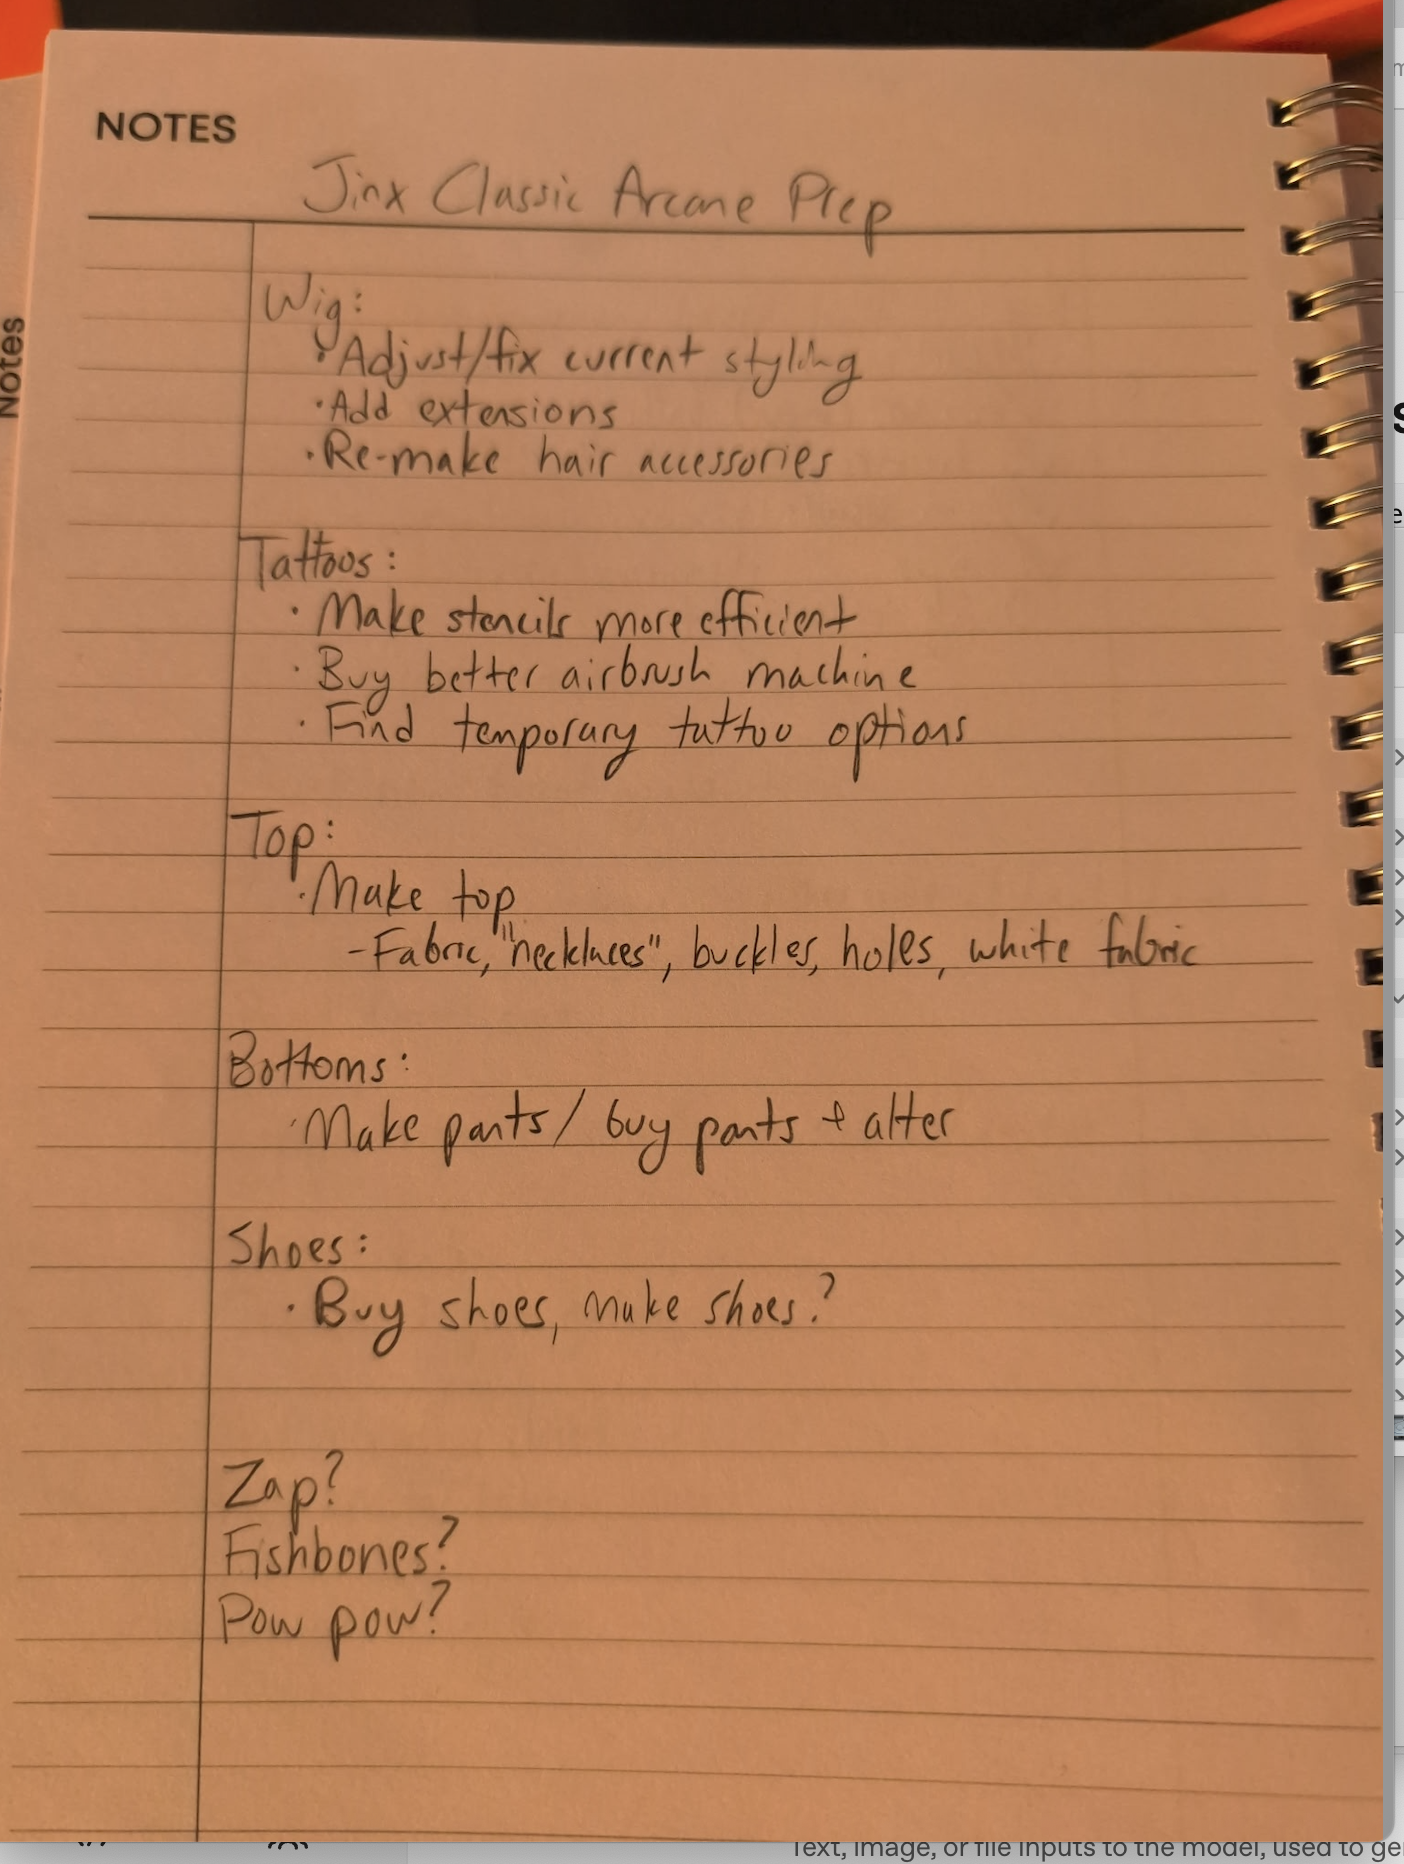 NOTES
Jinx Classic Arcane Prep
Notes
Wig:
·Adjust/fix current styling
·Add extensions
·Re-make hair accessories
Tattoos:
· Make stencils more efficient
· Buy better airbrush machine
· Find temporary tattoo options
Top:
·Make top
-Fabric, "necklaces", buckles, holes, white fabric
Bottoms:
·Make pants/ buy pants + alter
Shoes:
· Buy shoes, make shoes?
Zap?
Fishbones?
Pow pow?
Text, image, or file inputs to the model, used to ge